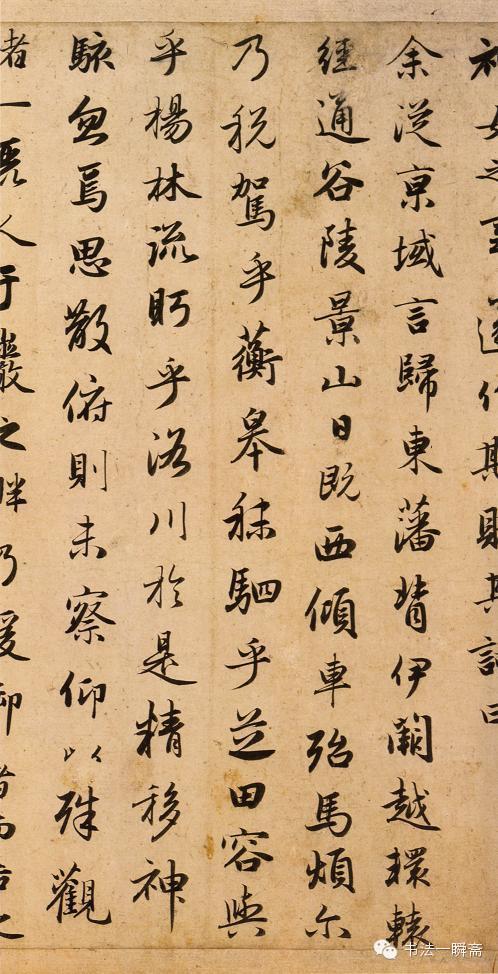 神女之事遂作斯賦其詞曰
余從京域言歸東藩背伊闕越轘轅
經通谷陵景山日既西傾車殆馬煩尔
乃税駕乎蘅皋秣駟乎芝田容與
乎楊林流眄乎洛川於是精移神
駭忽焉思散俯則未察仰以殊觀
睹一麗人于巖之畔乃援御者而告之
书法一瞬斋